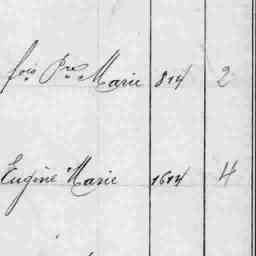 fois Pre Marie 814 2
Eugène Marie 1614 4